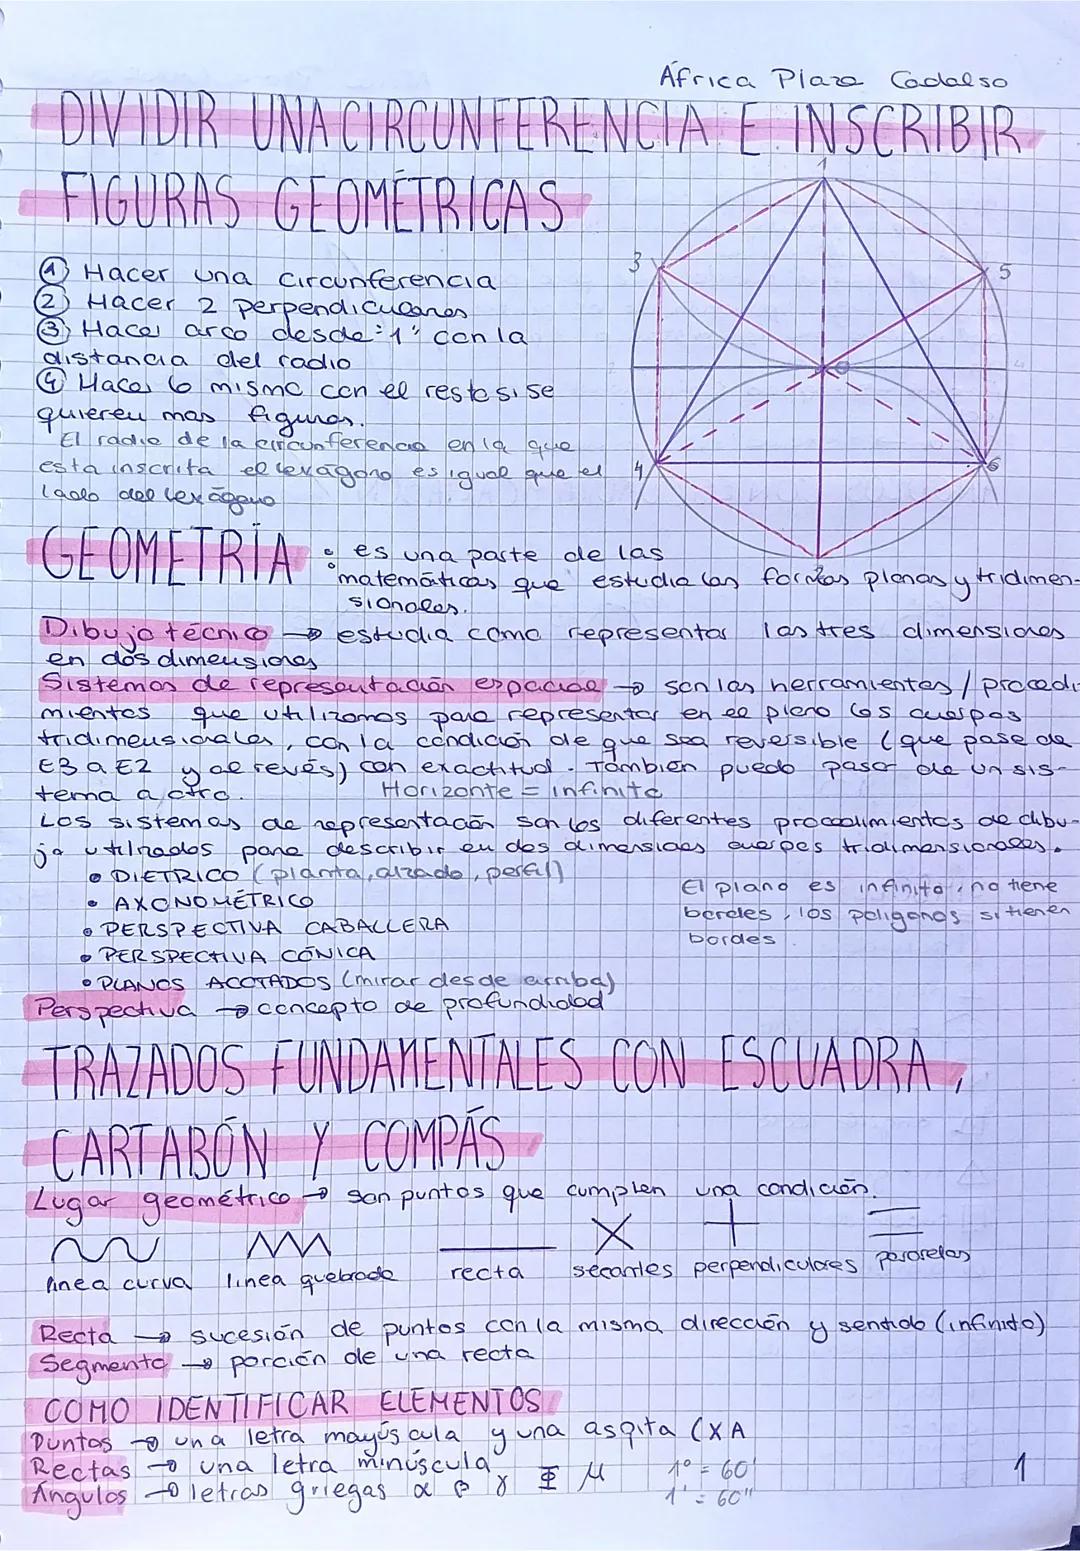 África Plaza Cadalso
DIVIDIR UNA CIRCUNFERENCIA E INSCRIBIR
FIGURAS GEOMÉTRICAS
1 Hacer una circunferencia
2 Hacer 2 perpendiculares
3 Hacer arco desde "1" con la
distancia del radio
4 Hacer lo mismo con el resto si se
quieren mas figuras.
El radio de la circunferencia en la que
esta inscrita el exágono es igual que el
lado del exágono
1
3
5
4
6
GEOMETRÍA : es una parte de las
matemáticas que estudia las formas planas y tridimen-
sionales.
Dibujo técnico → estudia como representar las tres dimensiones
en dos dimensiones
Sistemas de representación espacial → son las herramientas / procedi-
mientos que utilizamos para representar en el plano los cuerpos
tridimensionales, con la condición de que sea reversible (que pase de
E3 a E2 y al revés) con exactitud. También puedo pasar de un sis-
tema a otro. Horizonte = infinito
Los sistemas de representación son los diferentes procedimientos de dibu-
jo utilizados para describir en dos dimensiones cuerpos tridimensionales.
• DIETRICO (planta, alzado, perfil)
• AXONOMÉTRICO
• PERSPECTIVA CABALLERA
• PERSPECTIVA CÓNICA
• PLANOS ACOTADOS (mirar desde arriba)
El plano es infinito, no tiene
bordes, los poligonos si tienen
bordes
Perspectiva → concepto de profundidad
TRAZADOS FUNDAMENTALES CON ESCUADRA,
CARTABÓN Y COMPÁS
Lugar geométrico → son puntos que cumplen una condición.
linea curva linea quebrada recta secantes perpendiculares pararelas
Recta → sucesión de puntos con la misma dirección y sentido (infinito)
Segmento → porción de una recta
COMO IDENTIFICAR ELEMENTOS
Puntos → una letra mayúscula y una aspita (X A
Rectas → una letra minúscula
Ángulos → letras griegas α β γ Φ μ
1° = 60'
1' = 60''
1